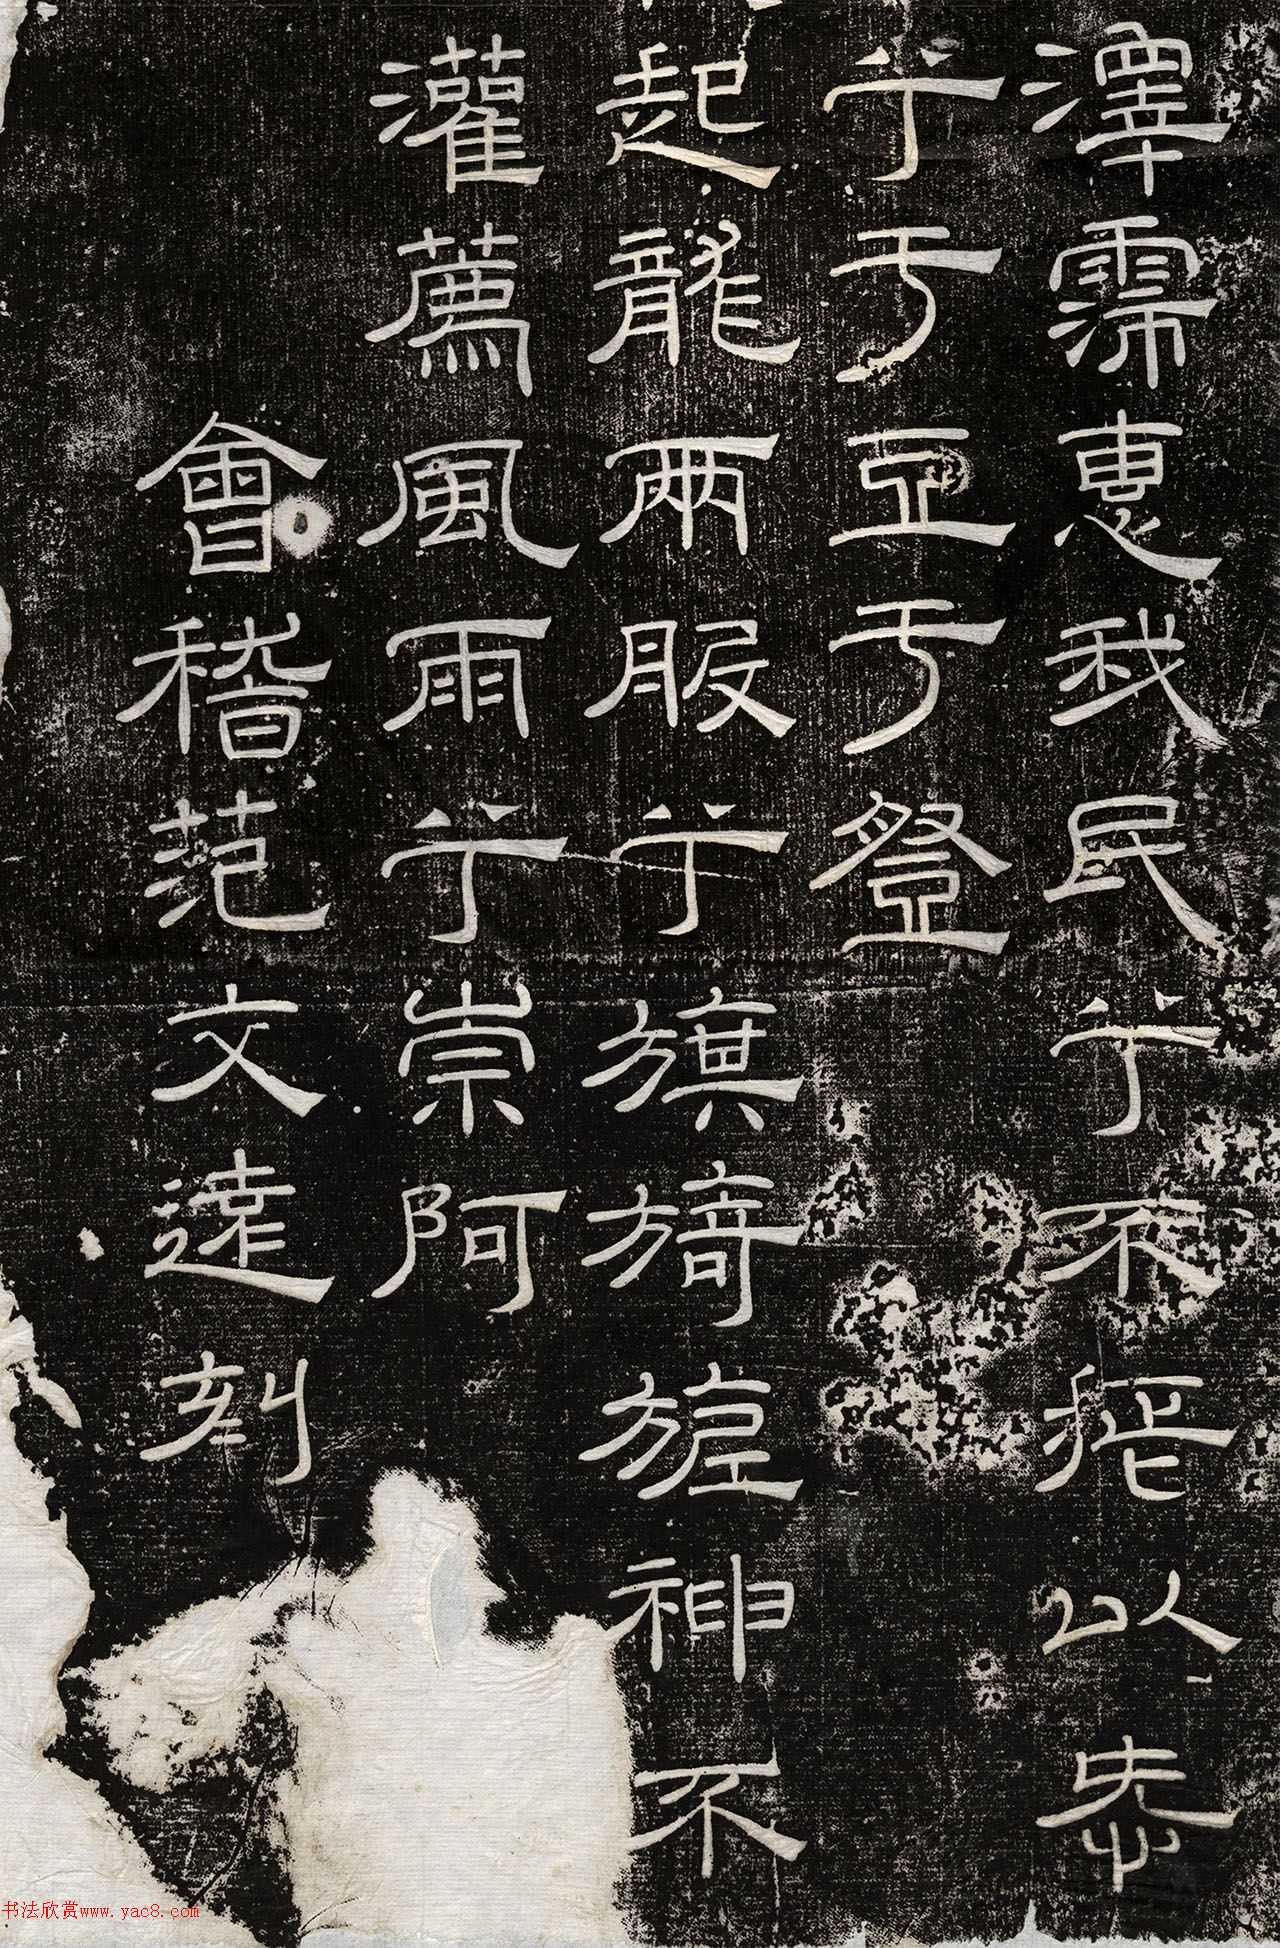 澤霈惠我民兮不以
兮于豆于登
起龍兩服兮旗旖旎神不
灌薦風雨兮崇阿
會稽范文遠刻
书法欣赏www.yac8.com